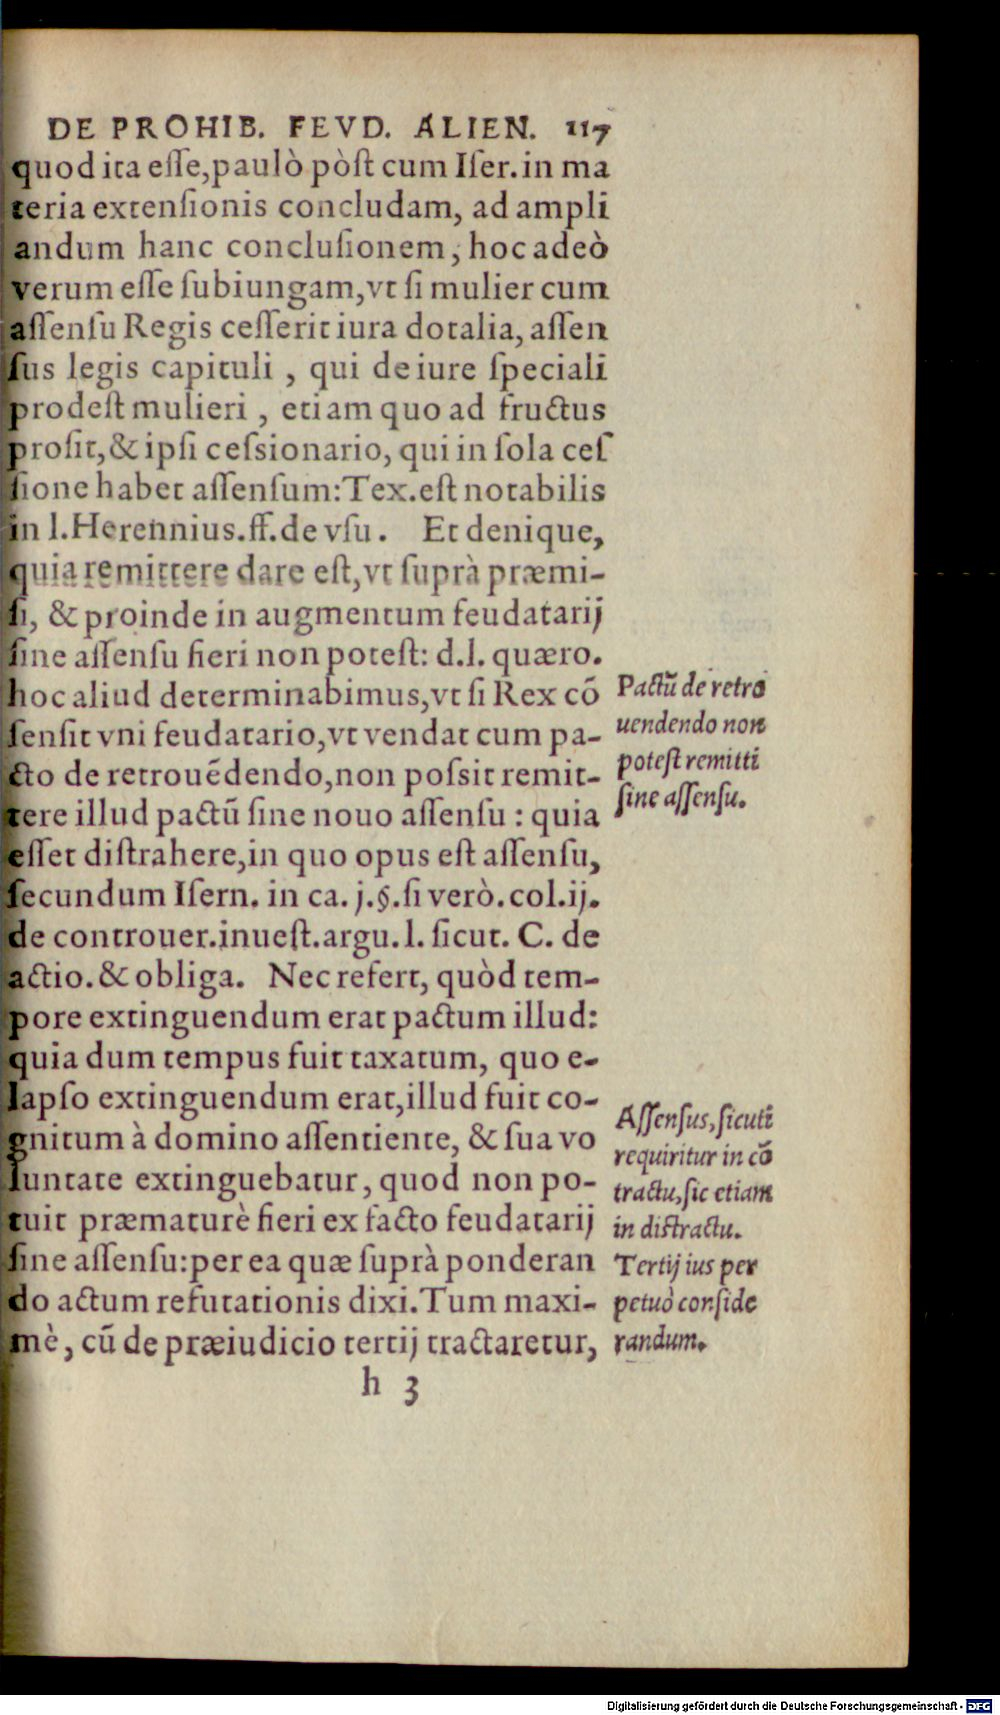 DE PROHIB. FEVD. ALIEN. 117
quod ita eſſe,paulò pòſt cum Iſer. in ma
teria extenſionis concludam, ad ampli
andum hanc concluſionem, hoc adeò
verum eſſe ſubiungam,vt ſi mulier cum
aſſenſu Regis ceſſerit iura dotalia, aſſen
ſus legis capituli , qui de iure ſpeciali
prodeſt mulieri , etiam quo ad fructus
proſit,& ipſi ceſsionario, qui in ſola ceſ
ſione habet aſſenſum:Tex.eſt notabilis
in l.Herennius.ff.de vſu. Et denique,
quia remittere dare eſt,vt ſuprà præmi-
ſi, & proinde in augmentum feudatarij
ſine aſſenſu fieri non poteſt: d.l. quæro.
hoc aliud determinabimus,vt ſi Rex cõ
ſenſit vni feudatario,vt vendat cum pa-
cto de retrouẽdendo,non poſsit remit-
tere illud pactũ ſine nouo aſſenſu : quia
eſſet diſtrahere,in quo opus eſt aſſenſu,
ſecundum Iſern. in ca. j.§.ſi verò.col.ij.
de controuer.inueſt.argu.l. ſicut. C. de
actio.& obliga. Nec refert, quòd tem-
pore extinguendum erat pactum illud:
quia dum tempus fuit taxatum, quo e-
lapſo extinguendum erat,illud fuit co-
gnitum à domino aſſentiente, & ſua vo
luntate extinguebatur, quod non po-
tuit præmaturè fieri ex facto feudatarij
ſine aſſenſu:per ea quæ ſuprà ponderan
do actum refutationis dixi.Tum maxi-
mè, cũ de præiudicio tertij tractaretur,
h 3
Pactũ de retro
uendendo non
poteſt remitti
ſine aſſenſu.
Aſſenſus,ſicuti
requiritur in cõ
tractu,ſic etiam
in diſtractu.
Tertij ius per
petuò conſide
randum.
Digitalisierung gefördert durch die Deutsche Forschungsgemeinschaft - DFG